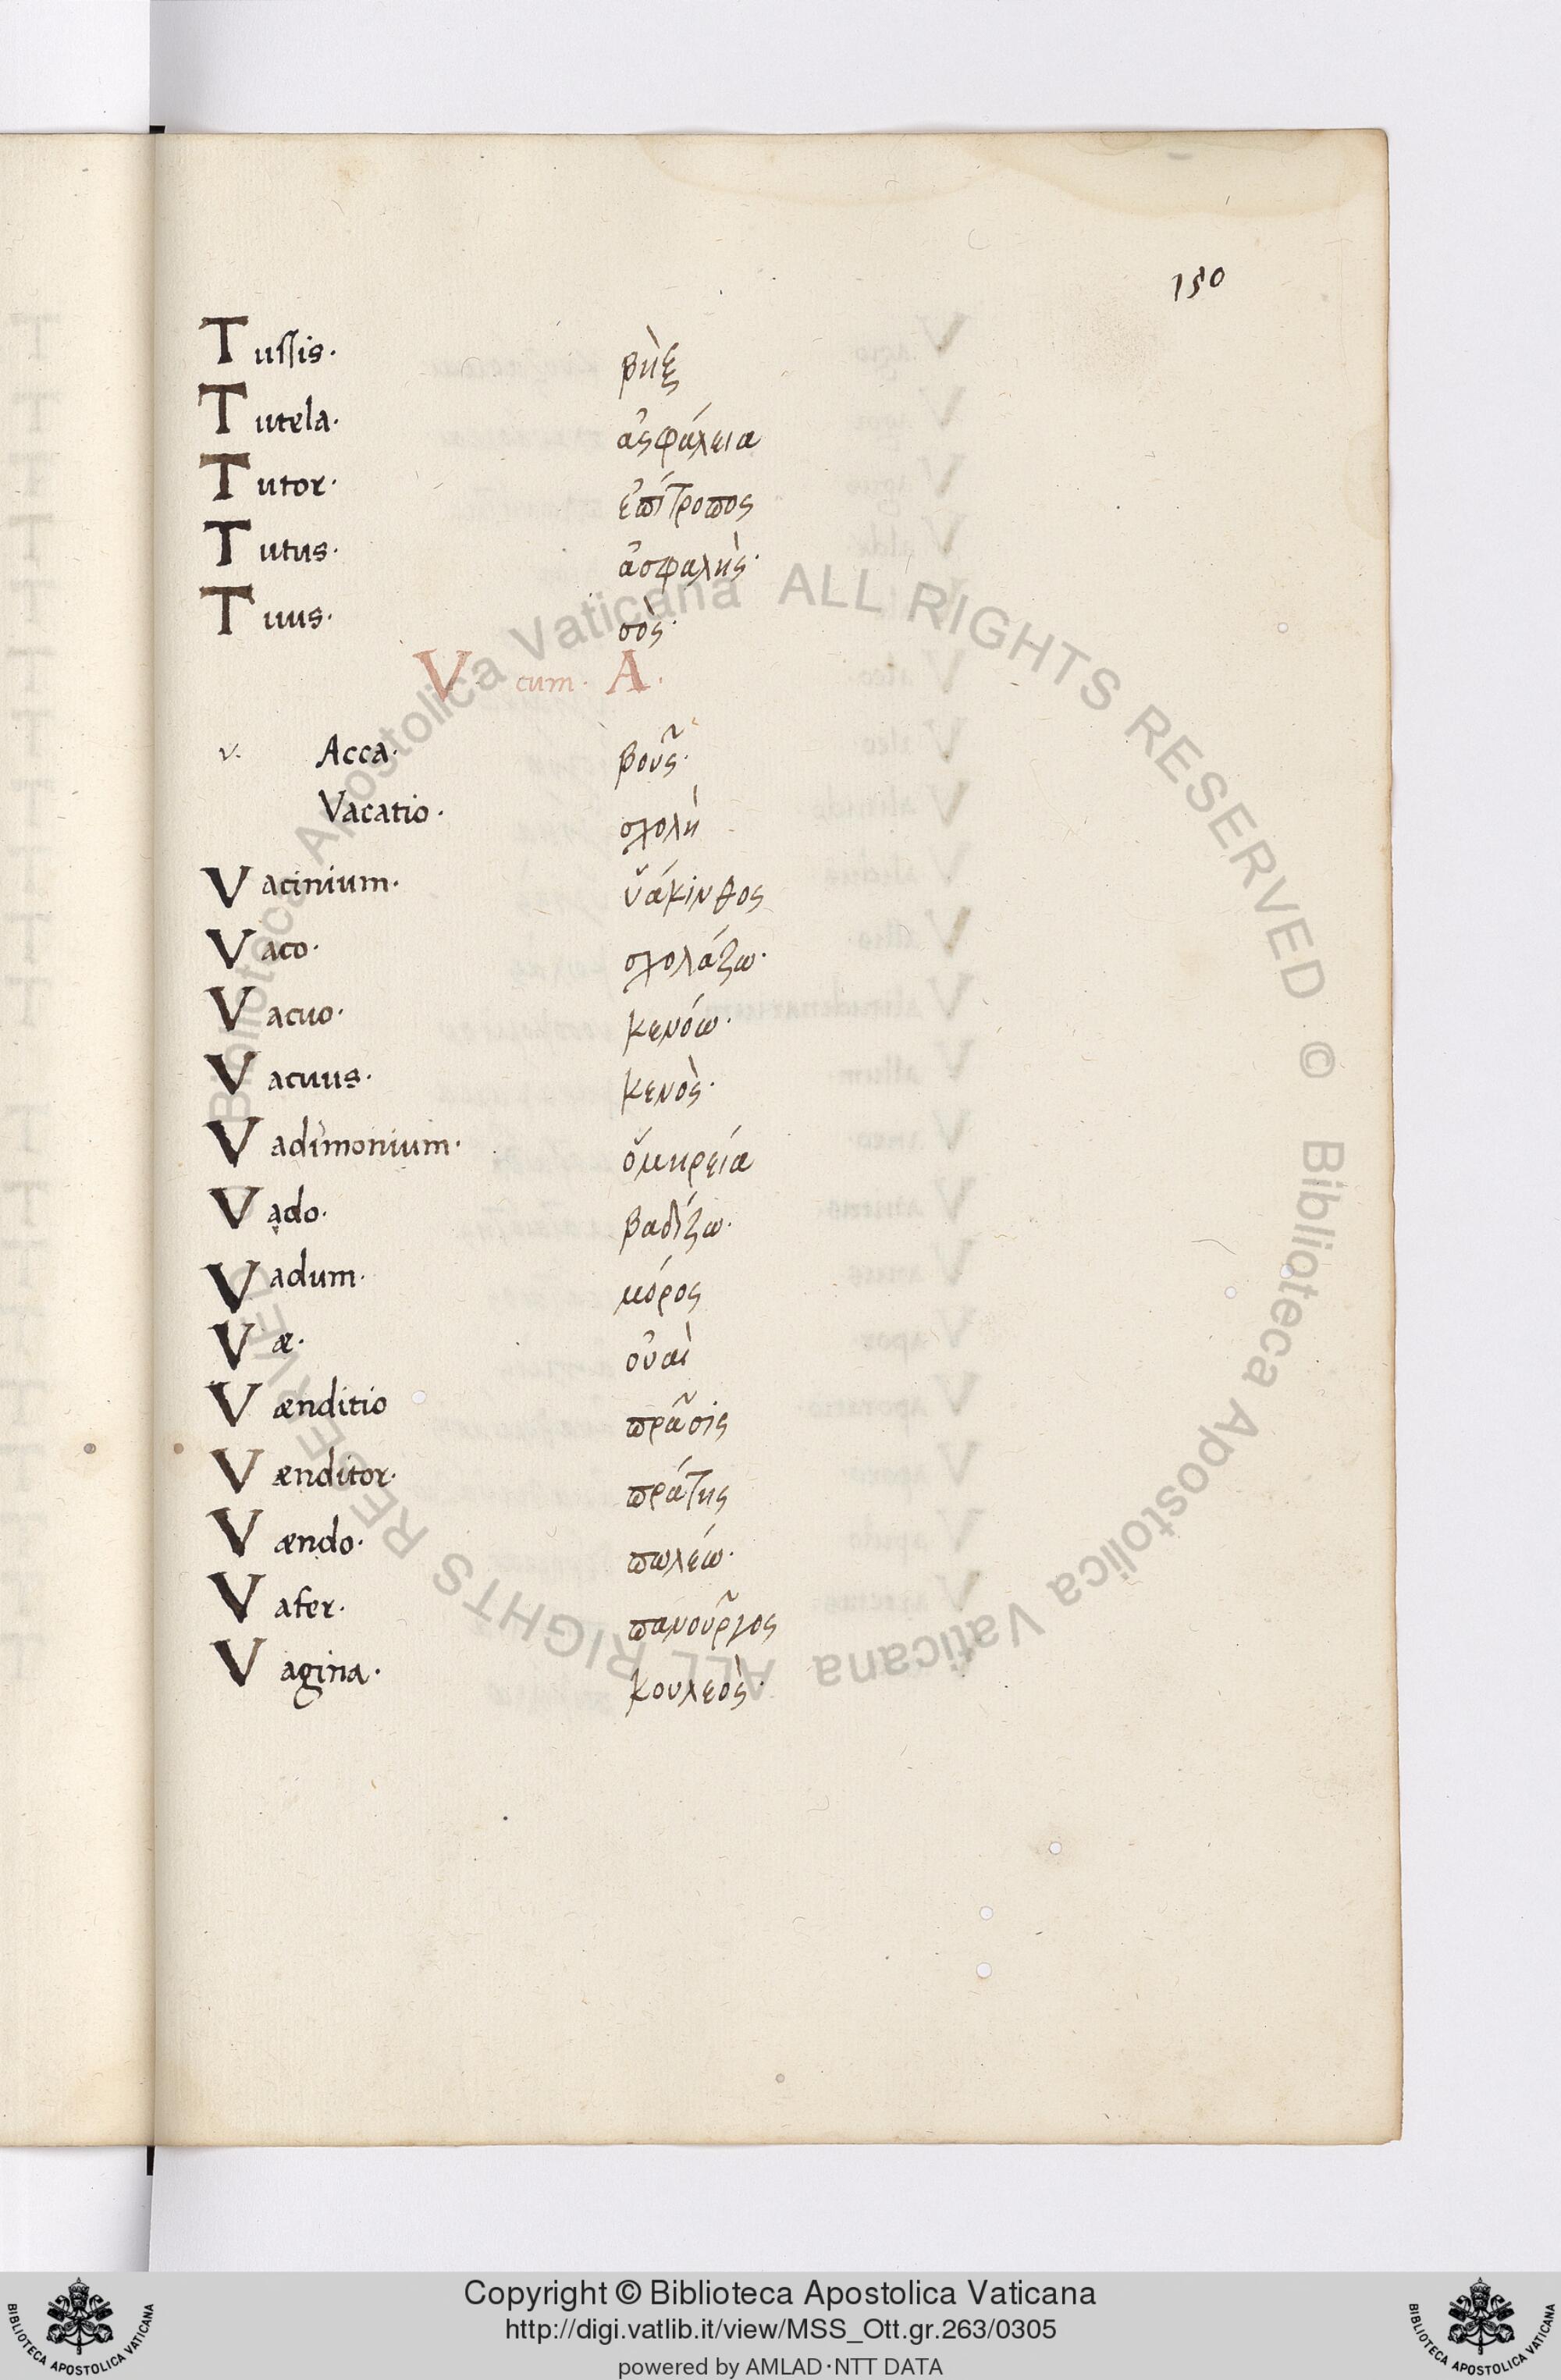 150
Tussis. βὴξ
Tutela. ἀσφάλεια
Tutor. ἐπίτροπος
Tutus. ἀσφαλὴς.
Tuus. σὸς.
V cum. A.
v. Acca. βοῦς.
Vacatio. σχολὴ
Vacinium. ὑάκινθος
Vaco. σχολάζω.
Vacuo. κενόω.
Vacuus. κενὸς.
Vadimonium. ὁμηρεία
Vado. βαδίζω.
Vadum. μόρος
Væ. οὐαὶ
Vænditio πρᾶσις
Vænditor. πράτης
Vændo. πωλέω.
Vafer. πανοῦργος
Vagina. κουλεὸς.
Biblioteca Apostolica Vaticana ALL RIGHTS RESERVED © Biblioteca Apostolica Vaticana ALL RIGHTS RESERVED
Copyright © Biblioteca Apostolica Vaticana
http://digi.vatlib.it/view/MSS_Ott.gr.263/0305
powered by AMLAD·NTT DATA
BIBLIOTECA APOSTOLICA VATICANA
BIBLIOTECA APOSTOLICA VATICANA